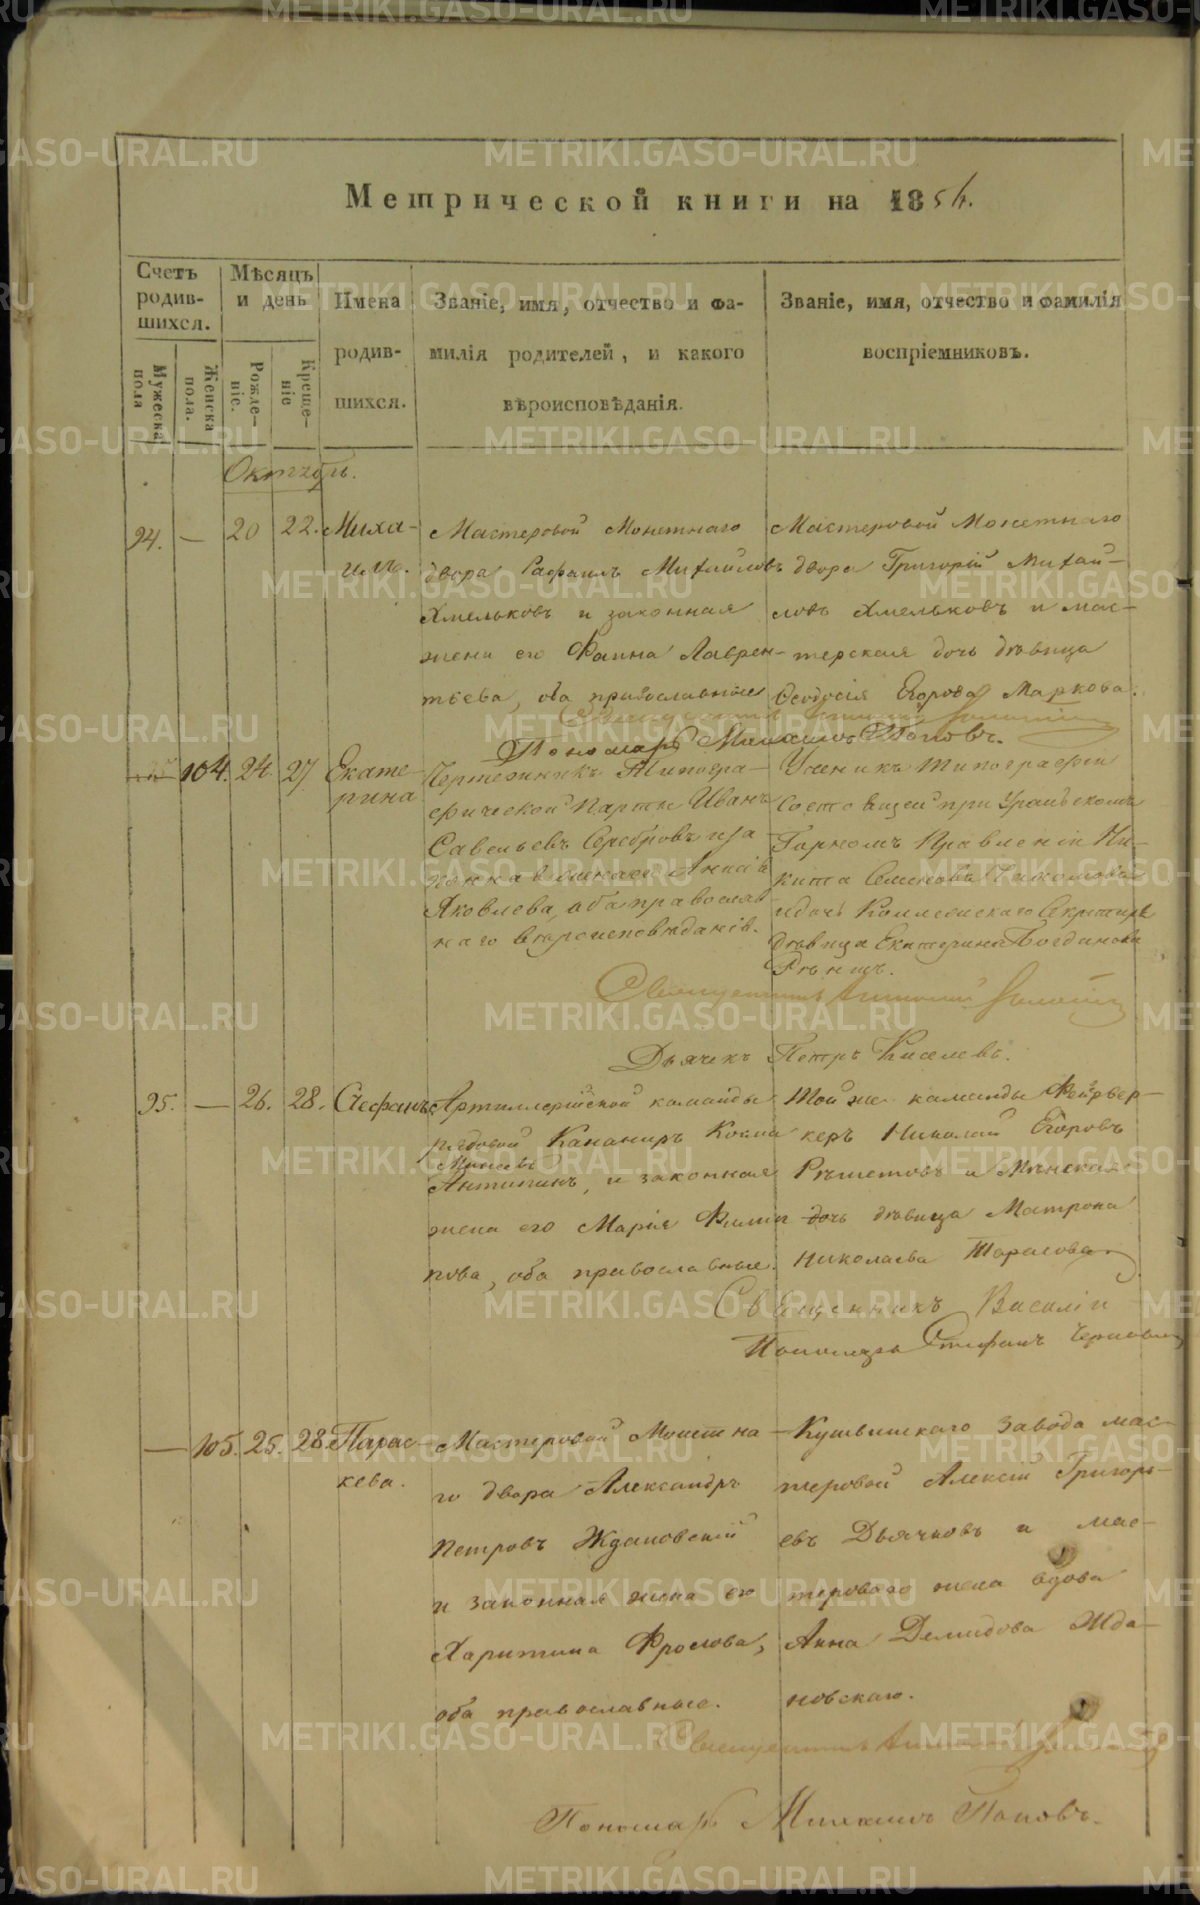 Метрической книги на 1854.
Счетъ родив-шихся.
Мѣсяцъ и день
Имена родив-шихся.
Званіе, имя, отчество и фа-милія родителей, и какого вѣроисповѣданія.
Званіе, имя, отчество и фамилія воспріемниковъ.
Мужеска пола
Женска пола.
Рожде-ніе.
Креще-ніе
94. — 20 22. Миха-илъ.
Мастеровой Монетнаго
двора Рафаилъ Михайловъ
Хмельковъ и законная
жена его Фаина Лаврен-
тьева, оба православные
Мастеровой Монетнаго
двора Григорій Михай-
ловъ Хмельковъ и мас-
терская дочь дѣвица
Ѳеодосія Егорова Маркова.
Пономарь Михаилъ Поповъ.
104. 24. 27 Екате-рина
Чертежникъ Типогра-
фической Иванъ
Савельевъ Серебровъ и за
конная жена его Анна
Яковлева, оба православ
наго вѣроисповѣданія.
Ученикъ типографіи
состоящей при Уральскомъ
Горномъ Правленіи Ни-
кита Семеновъ
и дочь Секретаря
дѣвица Екатерина Богданова
Дьячекъ Петръ Киселевъ.
95. — 26. 28. Стефанъ
Артиллерійской команды
рядовой Кананиръ Козма
Антипинъ, и законная
жена его Марія Филип
пова, оба православные.
Той же команды Фейервер-
керъ Николай Егоровъ
Рѣшетовъ и
дочь дѣвица Матрона
Николаева Тарасова
Священникъ Василій
Пономарь Стефанъ
— 105. 25. 28. Парас-кева.
Мастеровой Монетна-
го двора Александръ
Петровъ Ждановскій
и законная жена его
Харитина Фролова,
оба православные.
Кушвинскаго завода мас-
теровой Алексѣй Григорь-
евъ Дьячковъ и мас-
тероваго жена вдова
Анна Демидова Жда-
новская.
Пономарь Михаилъ Поповъ.
METRIKI.GASO-URAL.RU